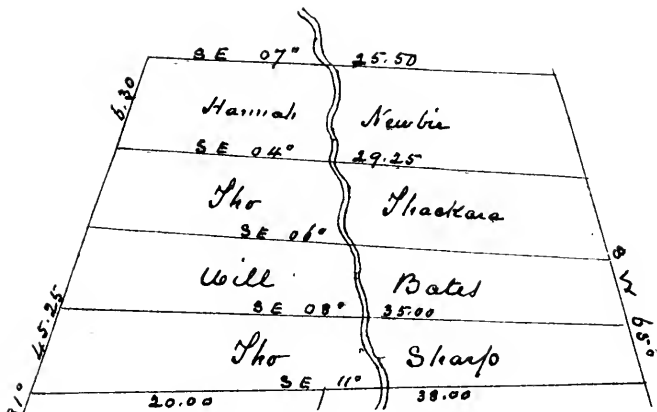 SE 07° 25.50
6.30
Hannah Newbie
SE 04° 29.25
Tho Thackara
SE 06°
Will Bates
S W 65°
45.25
SE 08° 35.00
Tho Sharp
SE 11°
20.00 38.00